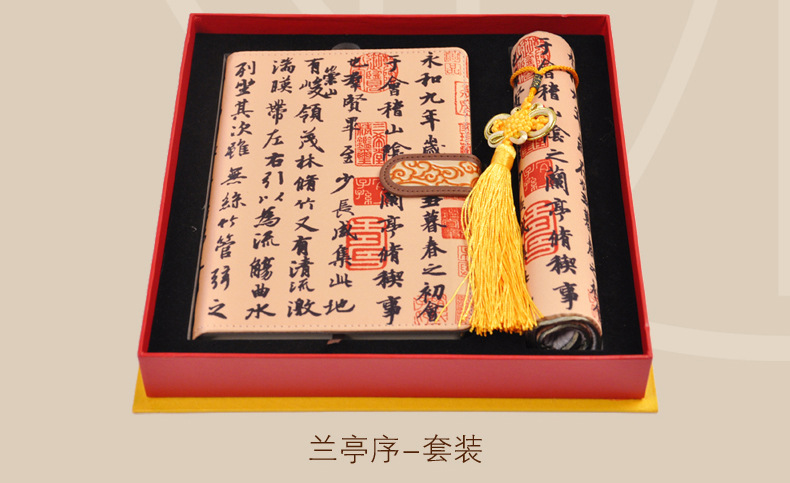 永和九年歲丑暮春之初會
于會稽山陰蘭亭脩禊事
也羣賢畢至少長咸集此地
有崇山峻領茂林脩竹又有清流激
湍暎帶左右引以為流觴曲水
列坐其次雖無絲竹管弦之
于會稽山陰之蘭亭脩禊事
兰亭序-套装